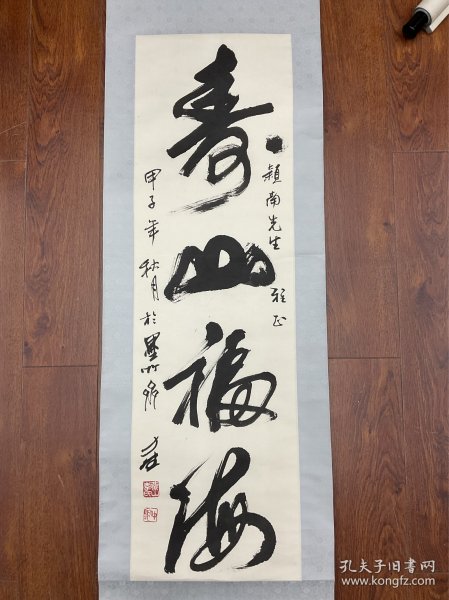 寿山福海
颖南先生 雅正
甲子年秋月於墨竹斋
孔夫子旧书网
www.kongfz.com